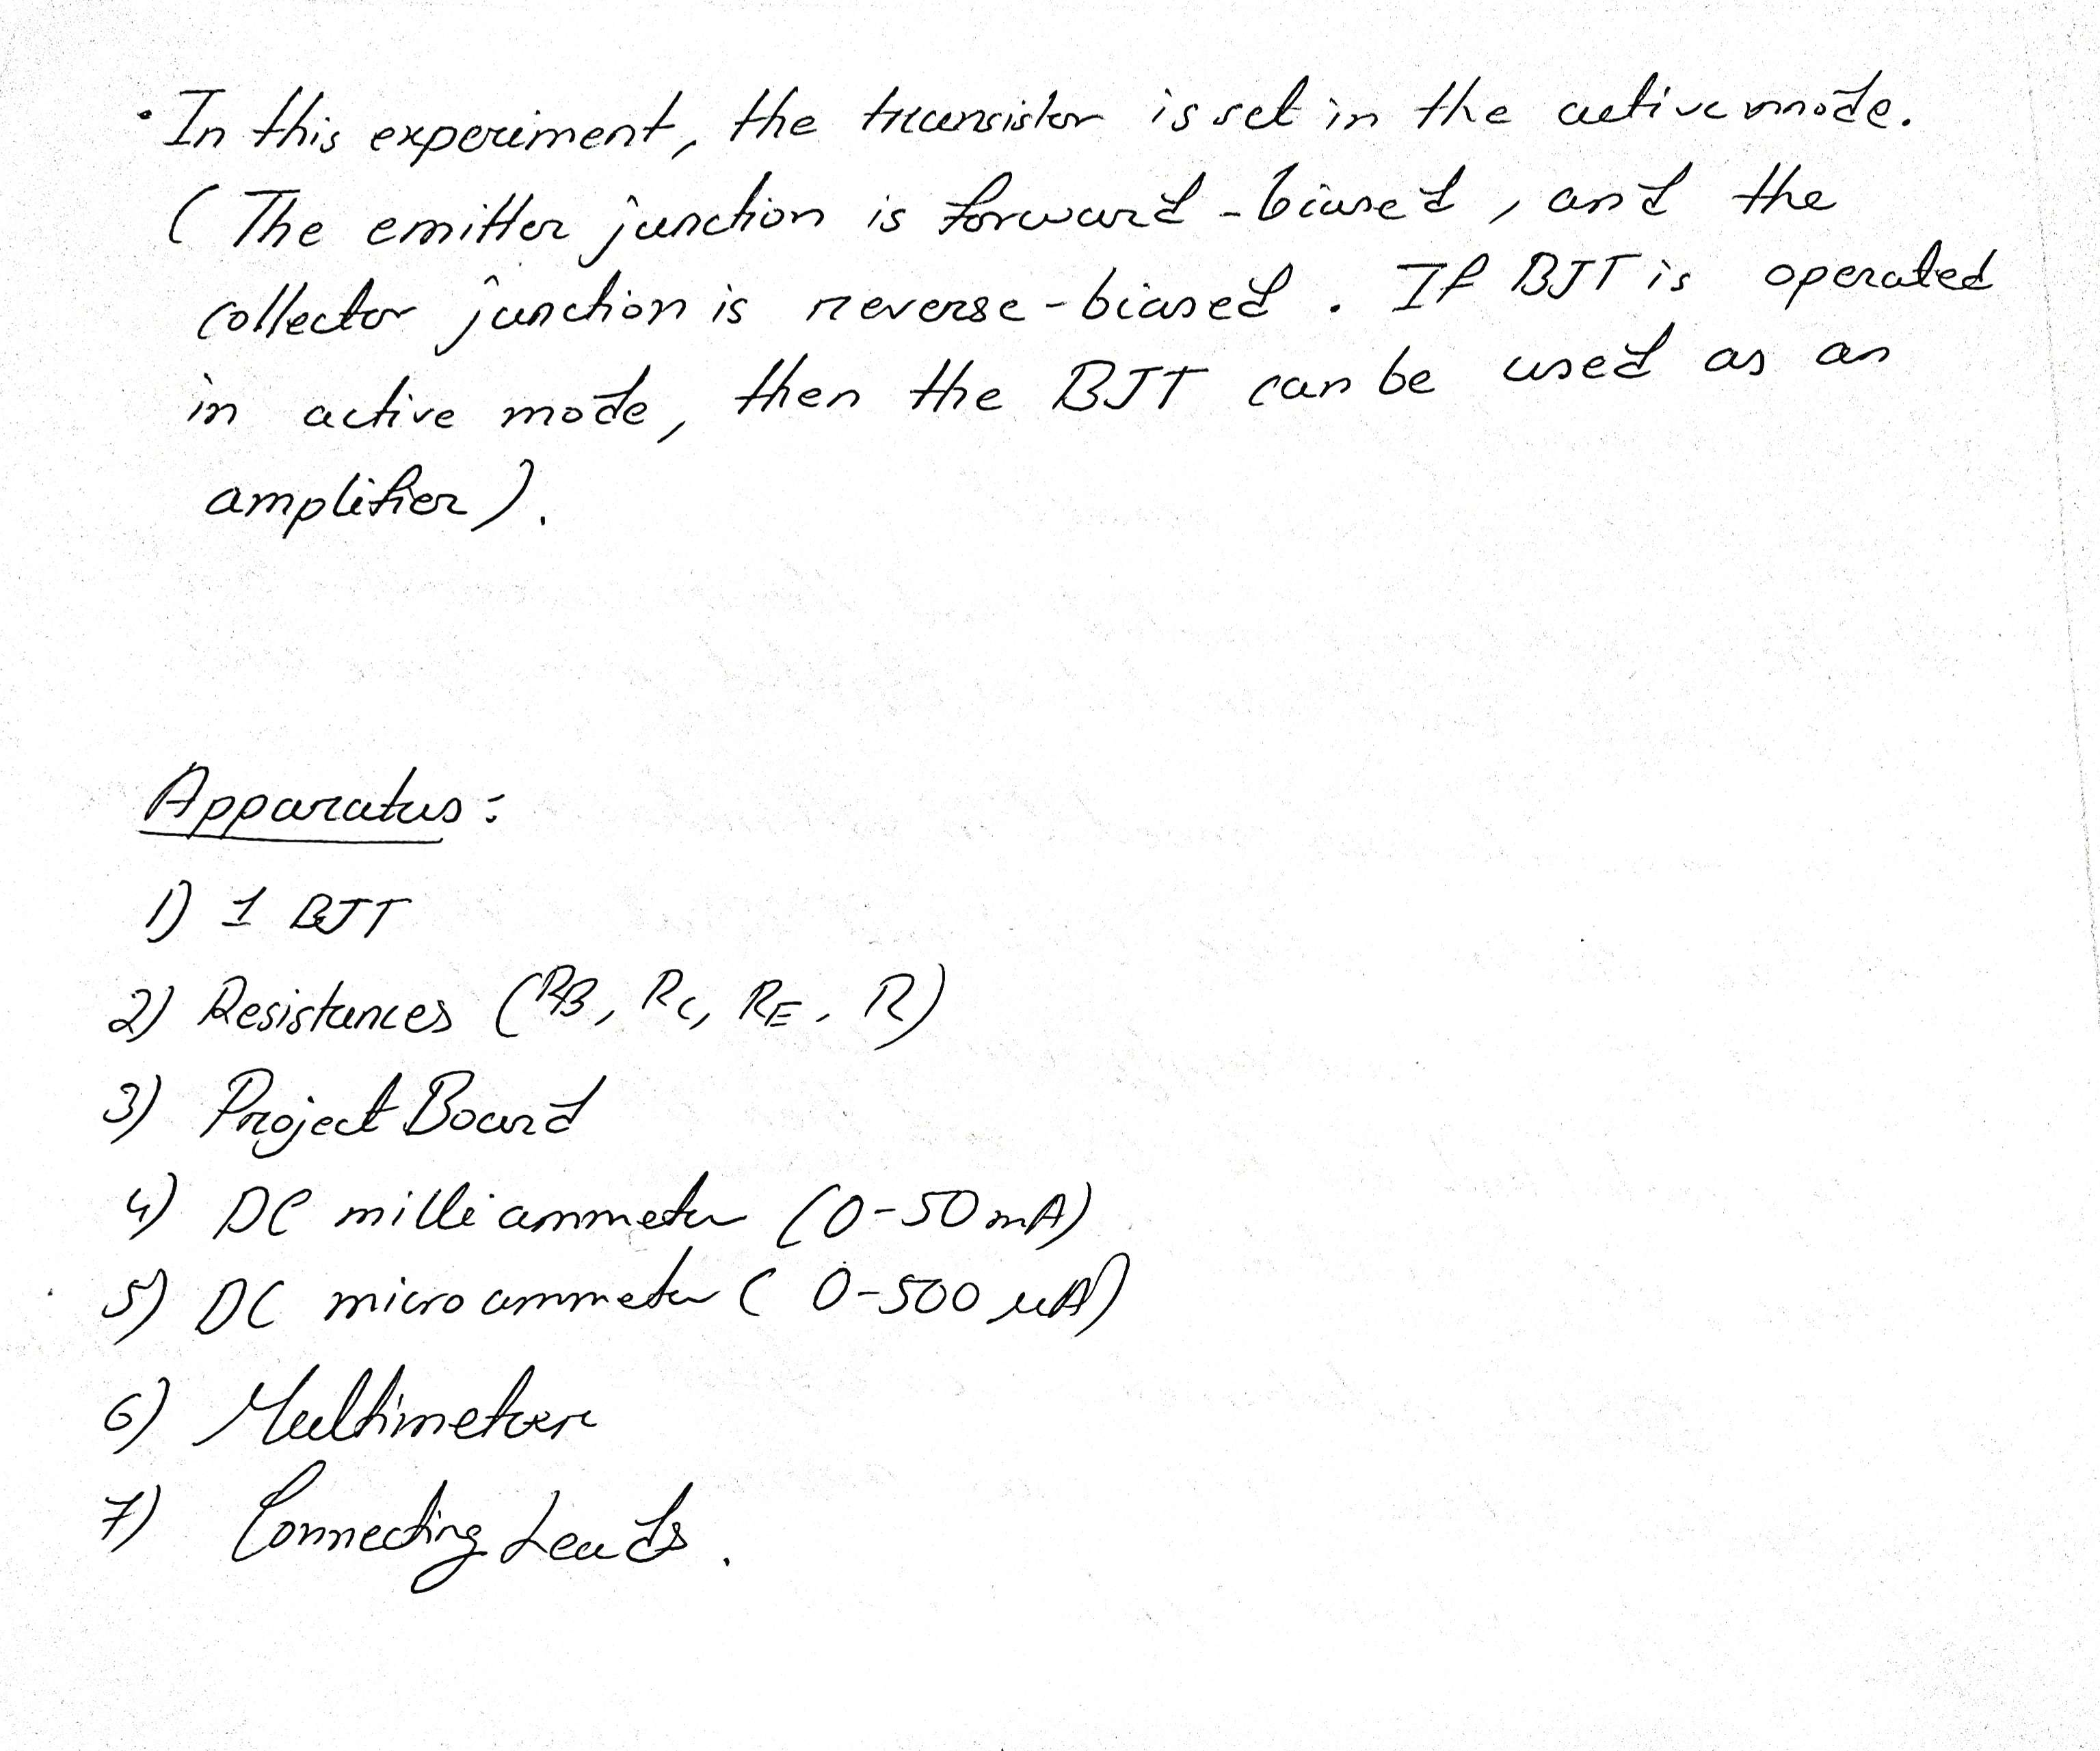 • In this experiment, the transistor is set in the active mode.
( The emitter junction is forward-biased, and the
collector junction is reverse-biased. If BJT is operated
in active mode, then the BJT can be used as an
amplifier).
Apparatus:
1) 1 BJT
2) Resistances (RB, RC, RE, R)
3) Project Board
4) DC milliammeter (0-50 mA)
5) DC microammeter ( 0-500 μA)
6) Multimeter
7) Connecting Leads.